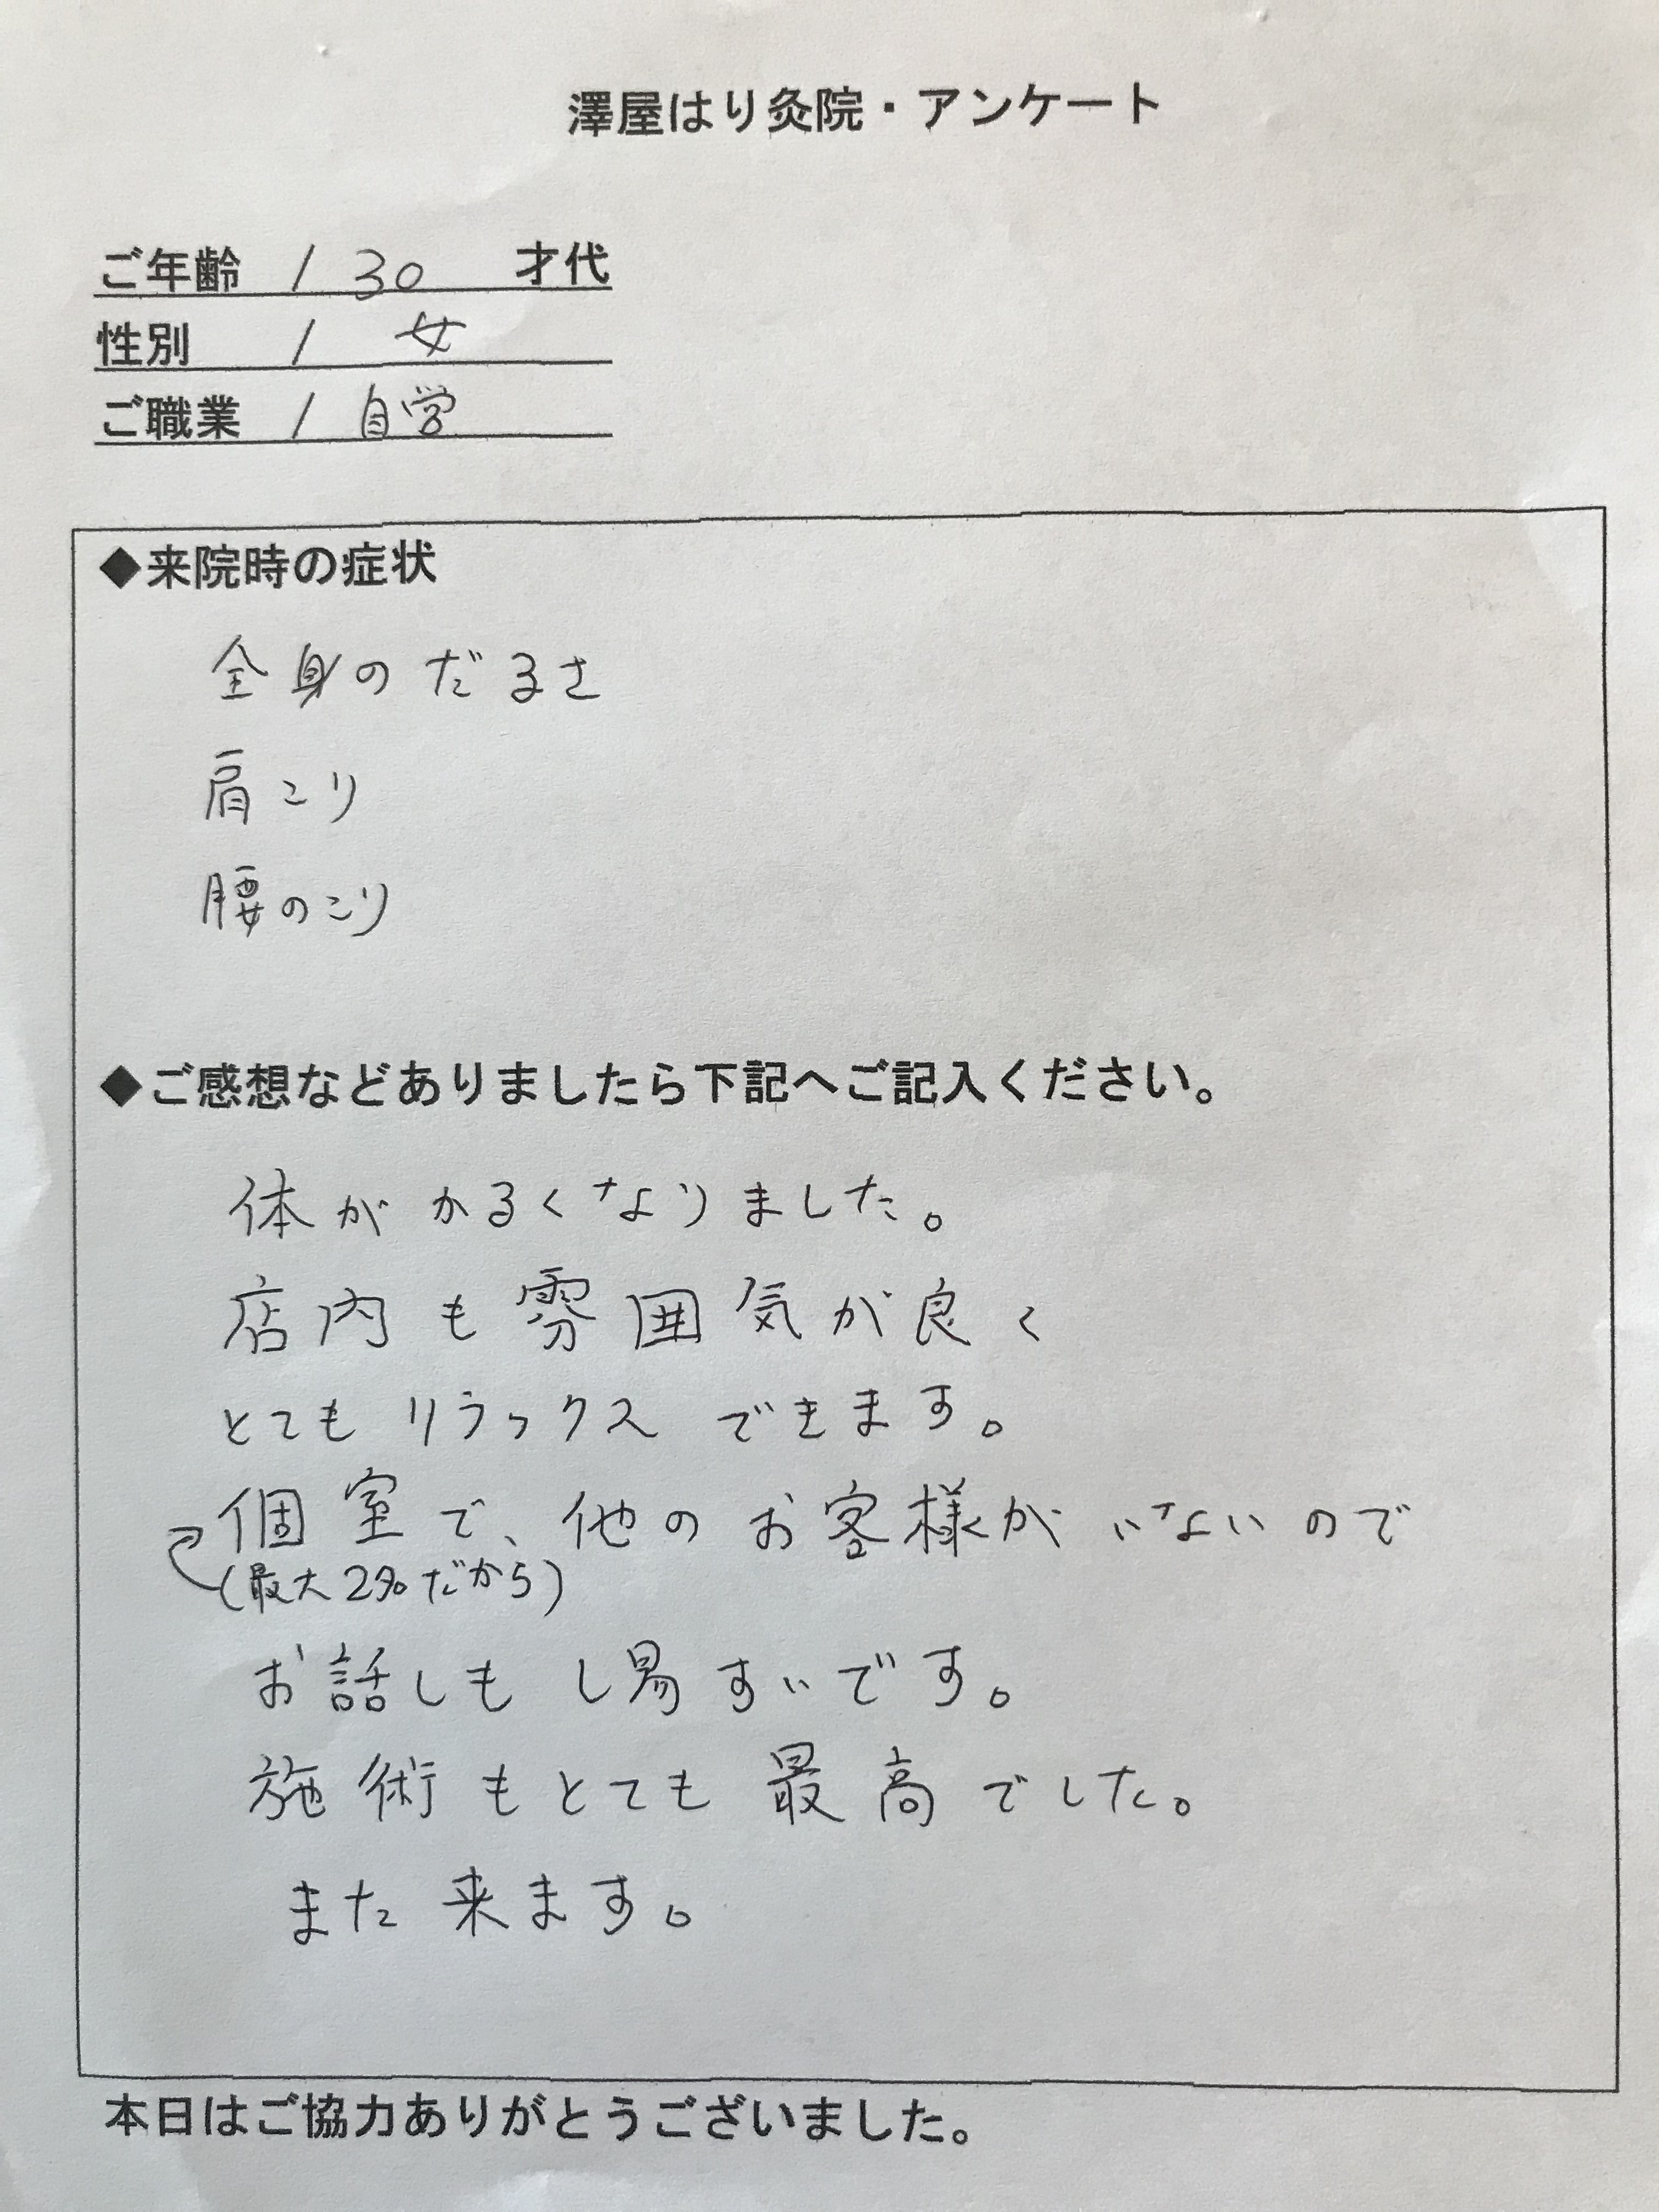 澤屋はり灸院・アンケート
ご年齢 / 30 才代
性別 / 女
ご職業 / 自営
◆来院時の症状
全身のだるさ
肩こり
腰のこり
◆ご感想などありましたら下記へご記入ください。
体がかるくなりました。
店内も雰囲気が良く
とてもリラックスできます。
個室で、他のお客様がいないので
(最大2名だから)
お話しもし易すいです。
施術もとても最高でした。
また来ます。
本日はご協力ありがとうございました。